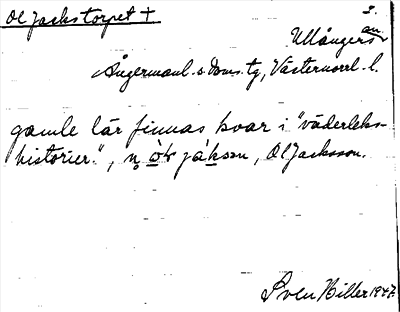 Ol Jackstorpet †
3.
Ullångers
an
Ångermanl. s doms. tg, Västernorrl. l.
gamle lär finnas kvar i "väderleks-
historier.", Ol Jacksson.
Sven Hiller 1947.